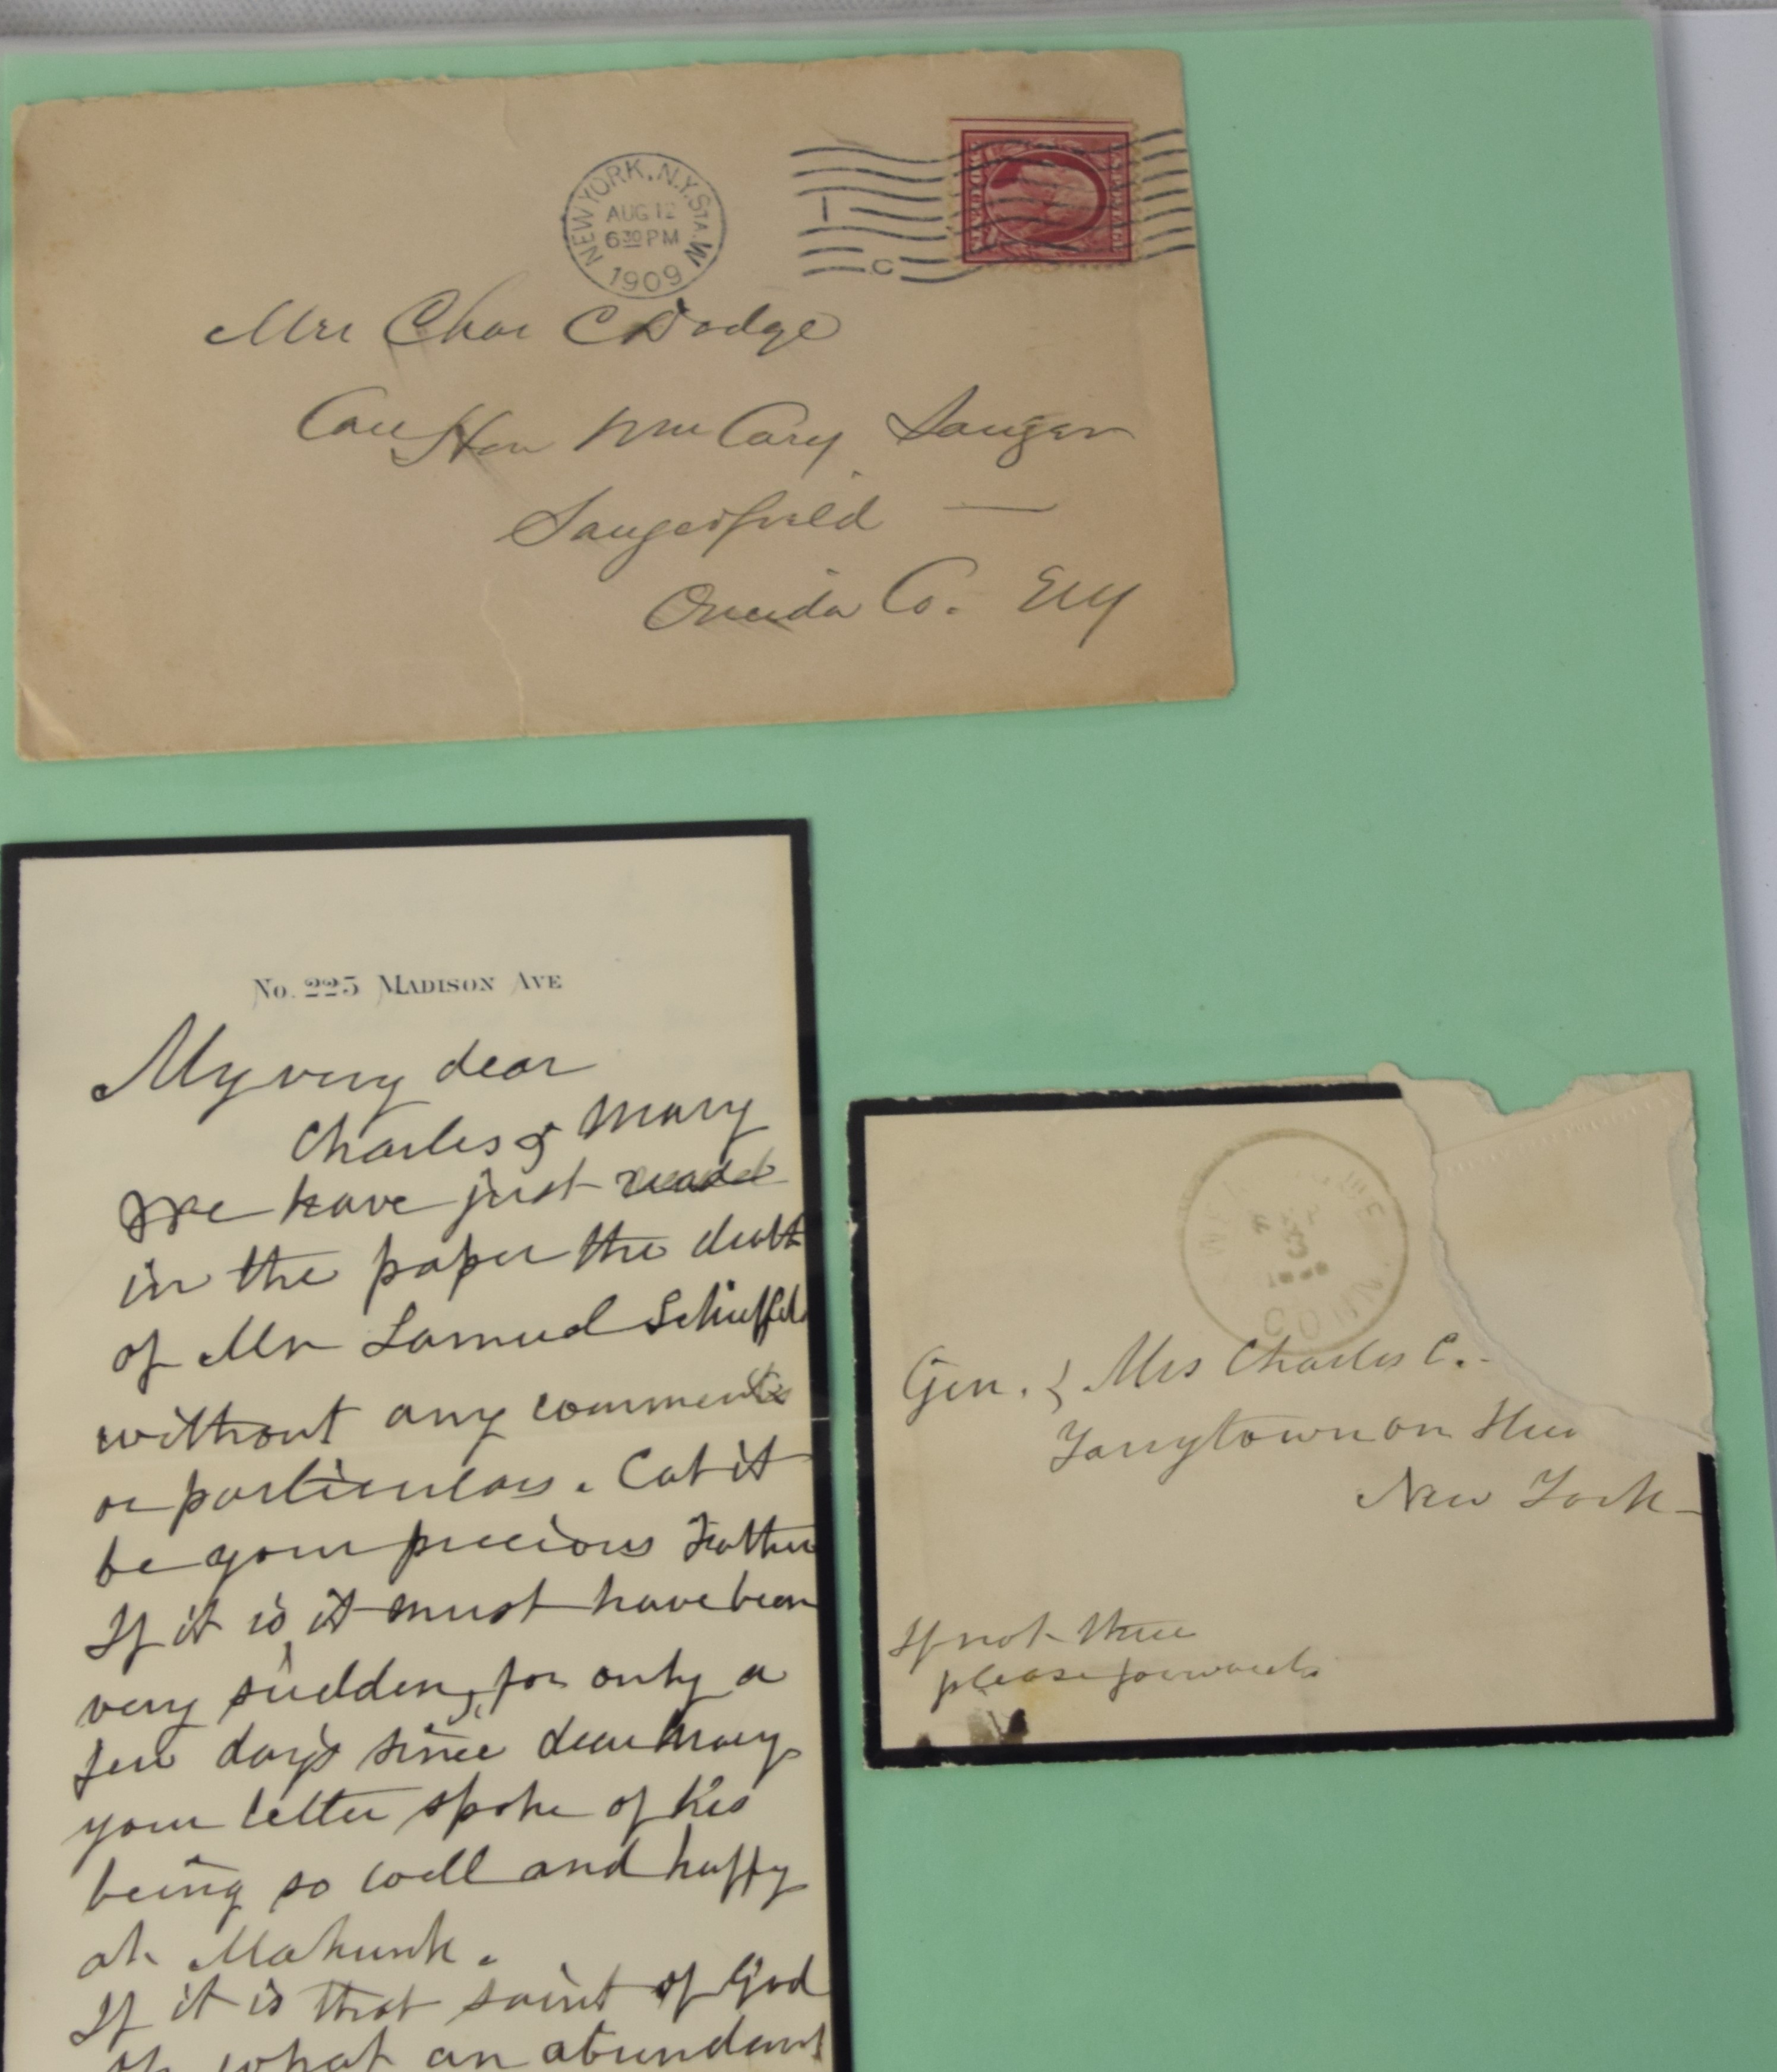 NEW YORK, N.Y. STA. W
AUG 12
6 30 PM
1909
1
C
Mrs Chas C Dodge
Care Hon Wm Cary Sanger
Sangerfield —
Oneida Co. NY
No. 225 Madison Ave
My very dear
Charles & Mary
We have just read
in the paper the death
of Mr Samuel Schieffel
without any comments
or particulars. Can it
be your precious Father
If it is it must have been
very sudden, for only a
few days since dear Mary
your letter spoke of his
being so well and happy
at Mohunk.
If it is that saint of God
what an abundant
CONN
Gen. & Mrs Charles C.
Tarrytown on Hud
New York
If not there
please forward